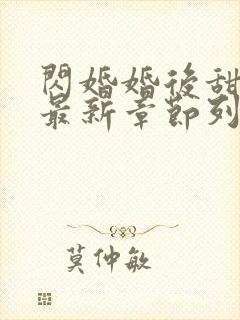 閃婚婚後甜
最新章節列
莫仲敏